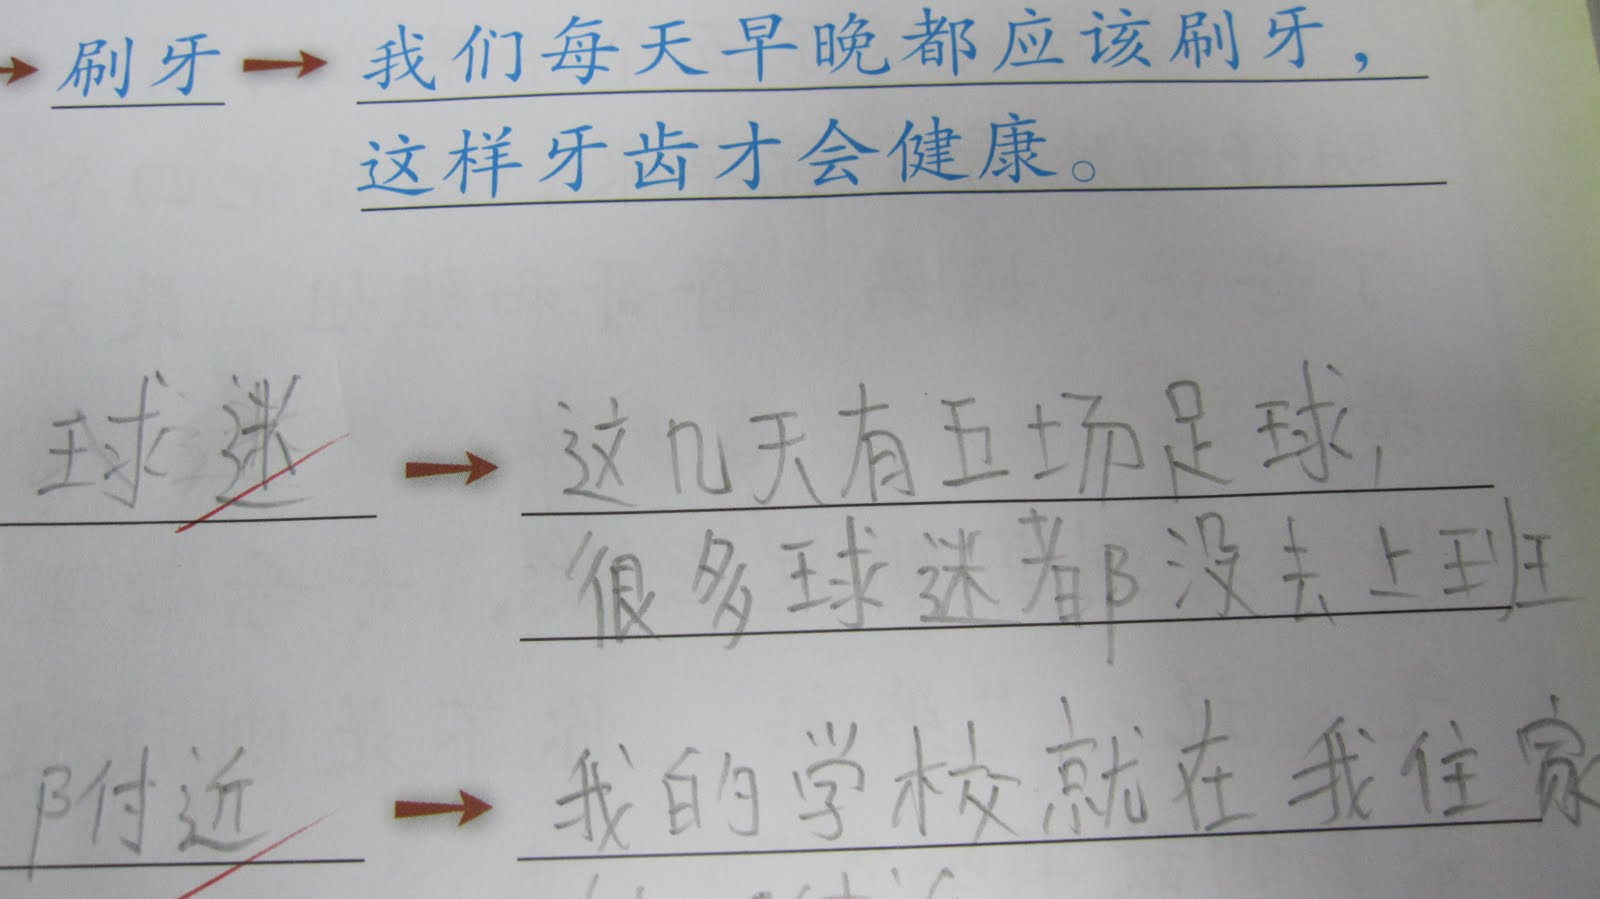 刷牙 我们每天早晚都应该刷牙，
这样牙齿才会健康。
球迷 这几天有五场足球，
很多球迷都没去上班
附近 我的学校就在我住家